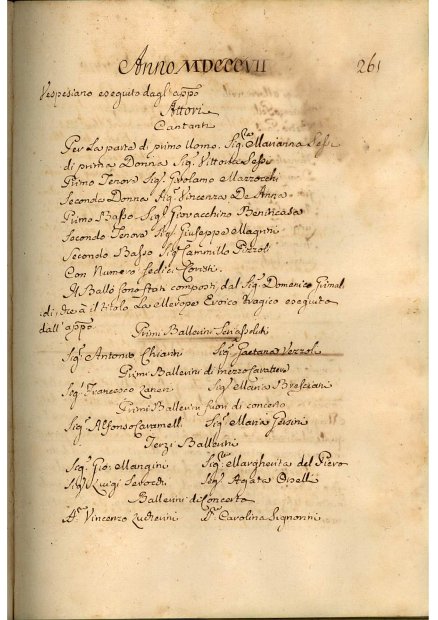 Anno MDCCCVII 261
Vespesiano eseguito dagl'appo
Attori
Cantanti
Per La parte di primo Uomo. Sig.ra Marianna Sessi
di prima Donna Sig.ra Vittoria Sessi
Primo Tenore Sig.r Girolamo Mazzocchi
Seconda Donna Sig.ra Vincenza De Anna
Primo Basso Sig.r Giovacchino Benincasa
Secondo Tenore Sig.r Giuseppe Magnini
Secondo Basso Sig.r Cammillo Pizzoli
Con Numero sedici Coristi.
Il Ballo sono stati composti dal Sig.r Domenico
di, che à il titolo La Merope Eroico tragico eseguito
dall'appo
Primi Ballerini Seri assoluti
Sig.r Antonio Chianni Sig.ra Gaetana Vezzoli
Primi Ballerini di mezzo Carattere
Sig.r Francesco Sig.ra Maria Bresciani
Primi Ballerini fuori di concerto
Sig.r Alfonso Caramelli Sig.ra Maria
Terzi Ballerini
Sig.r Gio: Mangini Sig.ra Margherita del Piero
Sig.r Luigi Sig.ra Agata
Ballerini di Concerto
Vincenzo Carolina Signorini